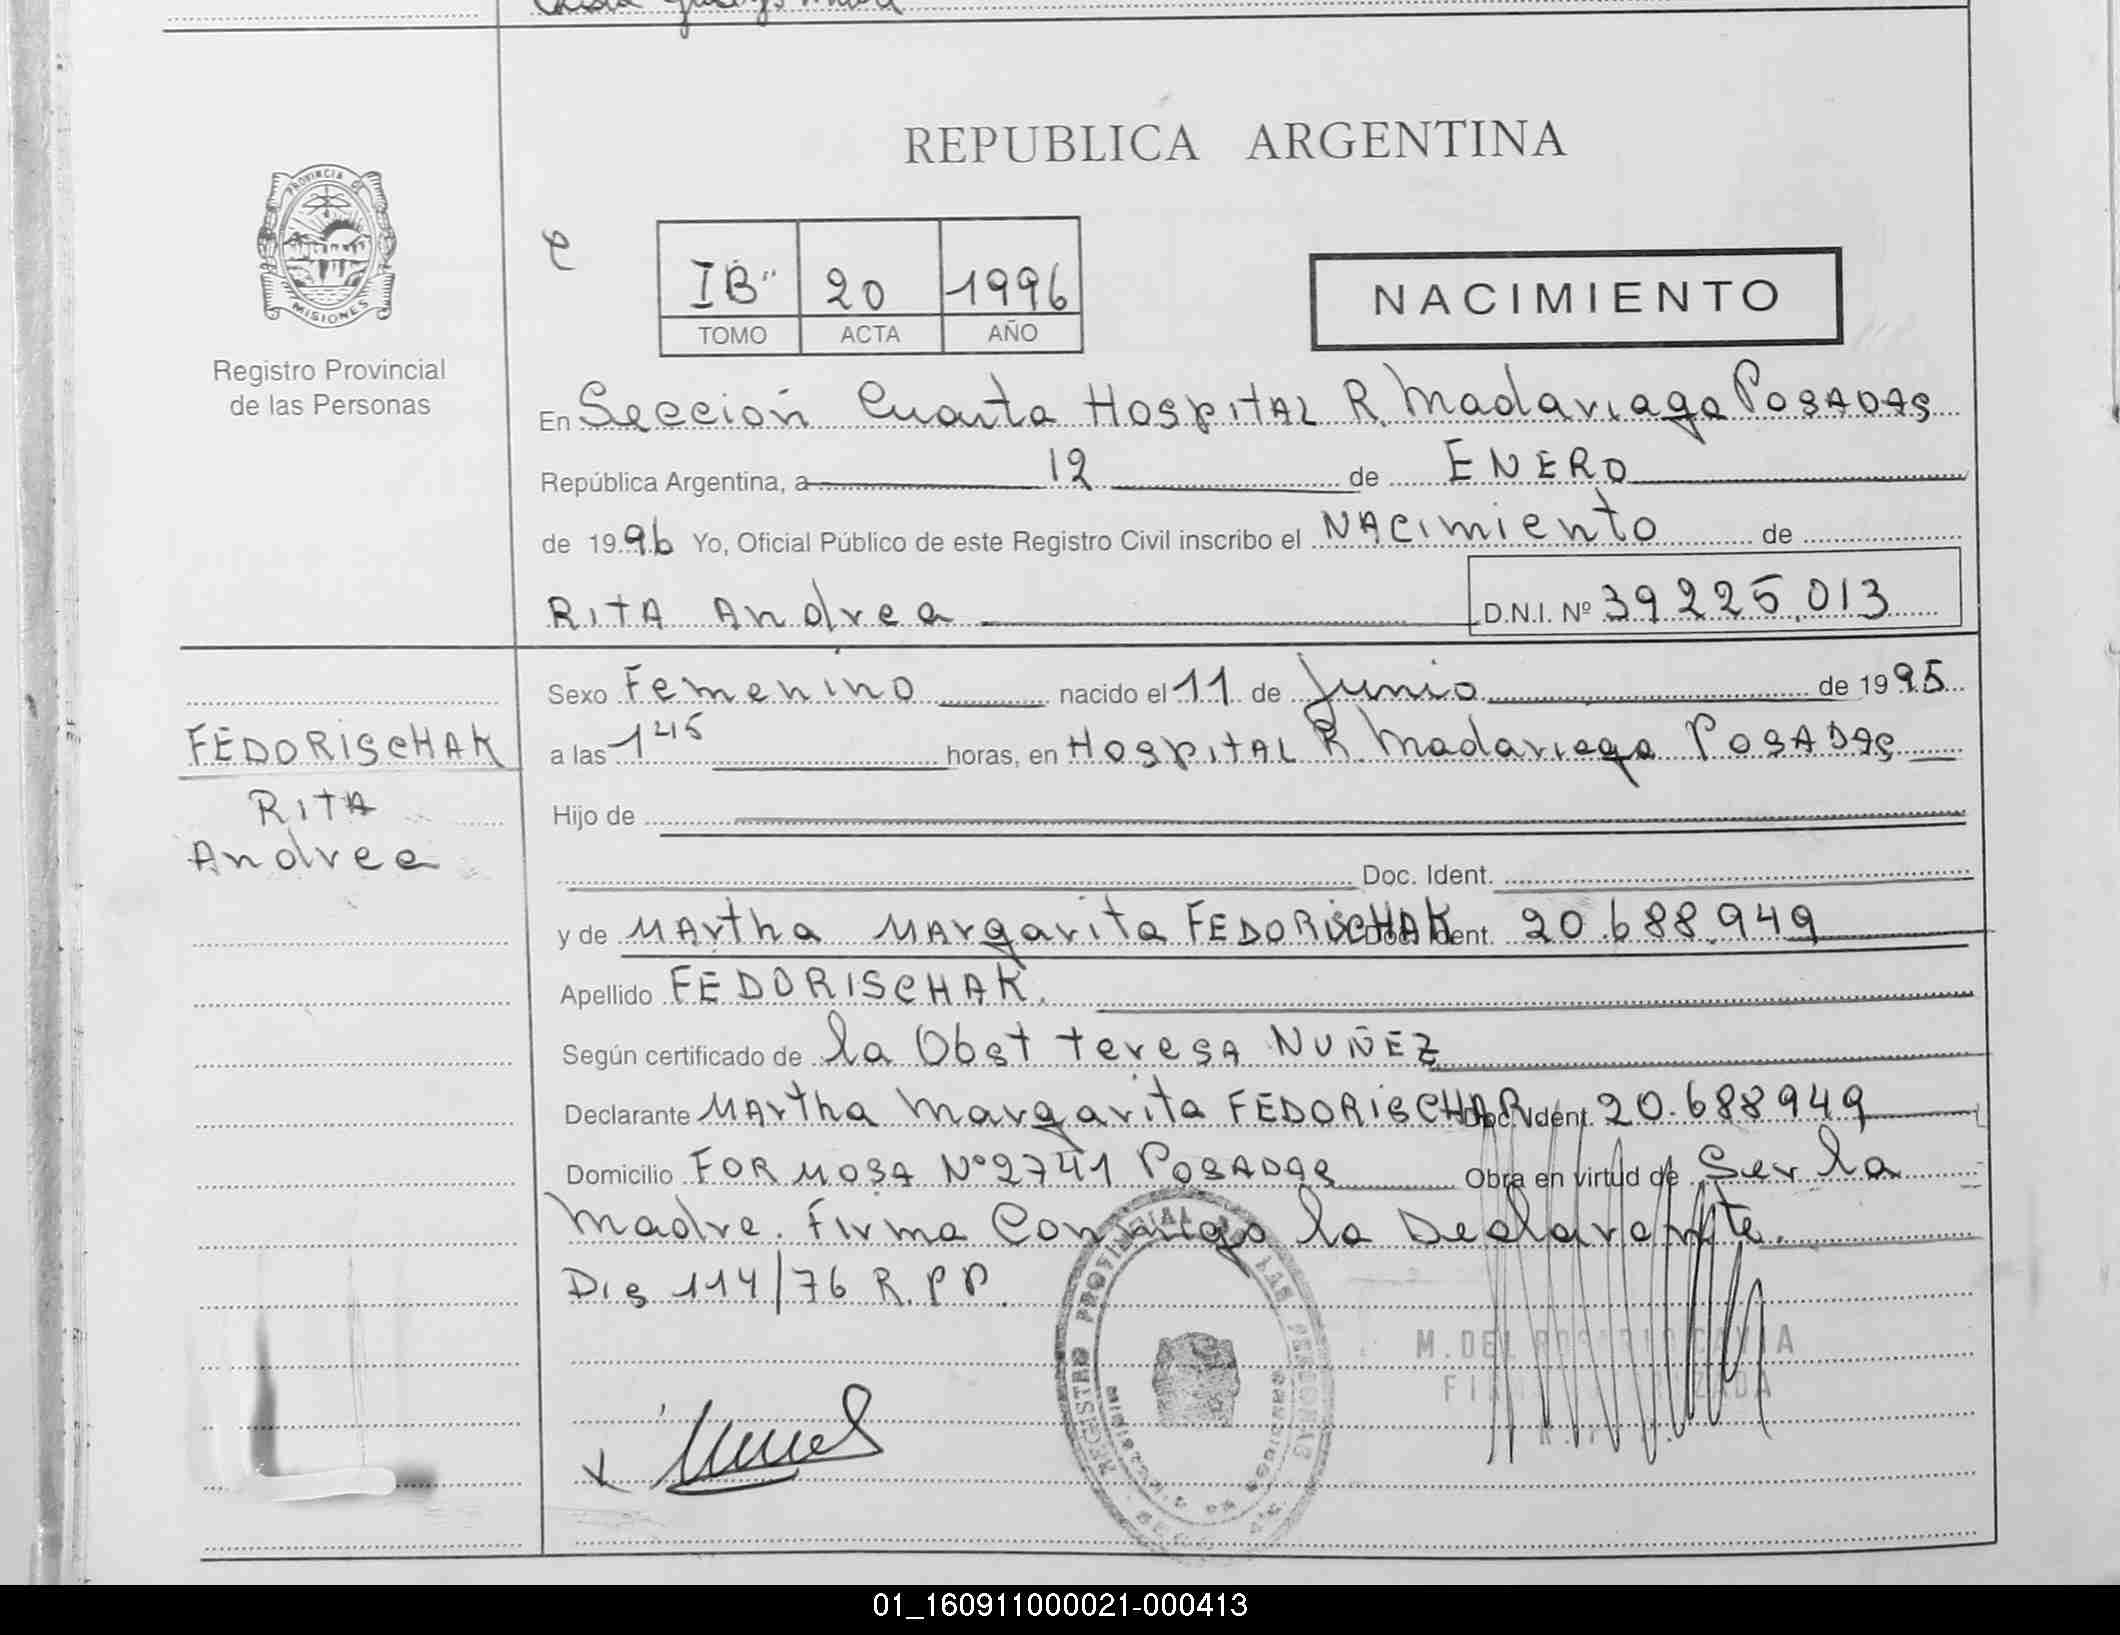 REPUBLICA ARGENTINA
PROVINCIA DE
MISIONES
Registro Provincial
de las Personas
IB" 20 1996
TOMO ACTA AÑO
NACIMIENTO
En Sección Cuarta Hospital R. Madariaga Posadas
República Argentina, a 12 de ENERO
de 1996 Yo, Oficial Público de este Registro Civil inscribo el Nacimiento de
RitA Andrea D.N.I. Nº 39.225.013
Sexo Femenino nacido el 11 de Junio de 1995
a las 1 45 horas, en Hospital R. Madariaga Posadas
Hijo de
Doc. Ident.
y de Martha Margarita FEDORISCHAK Doc. Ident. 20.688.949
Apellido FEDORISCHAK.
Según certificado de la Obst teresa NUÑEZ
Declarante Martha Margarita FEDORISCHAK Doc. Ident. 20.688949
Domicilio FORMOSA Nº 2741 Posadas Obra en virtud de Ser la
Madre. Firma Conmigo la Declarante.
Dis 114/76 R.P.P.
FEDORISCHAK
RitA
Andrea
REGISTRO PROVINCIAL DE LAS PERSONAS
M. DEL ROSARIO
01_160911000021-000413